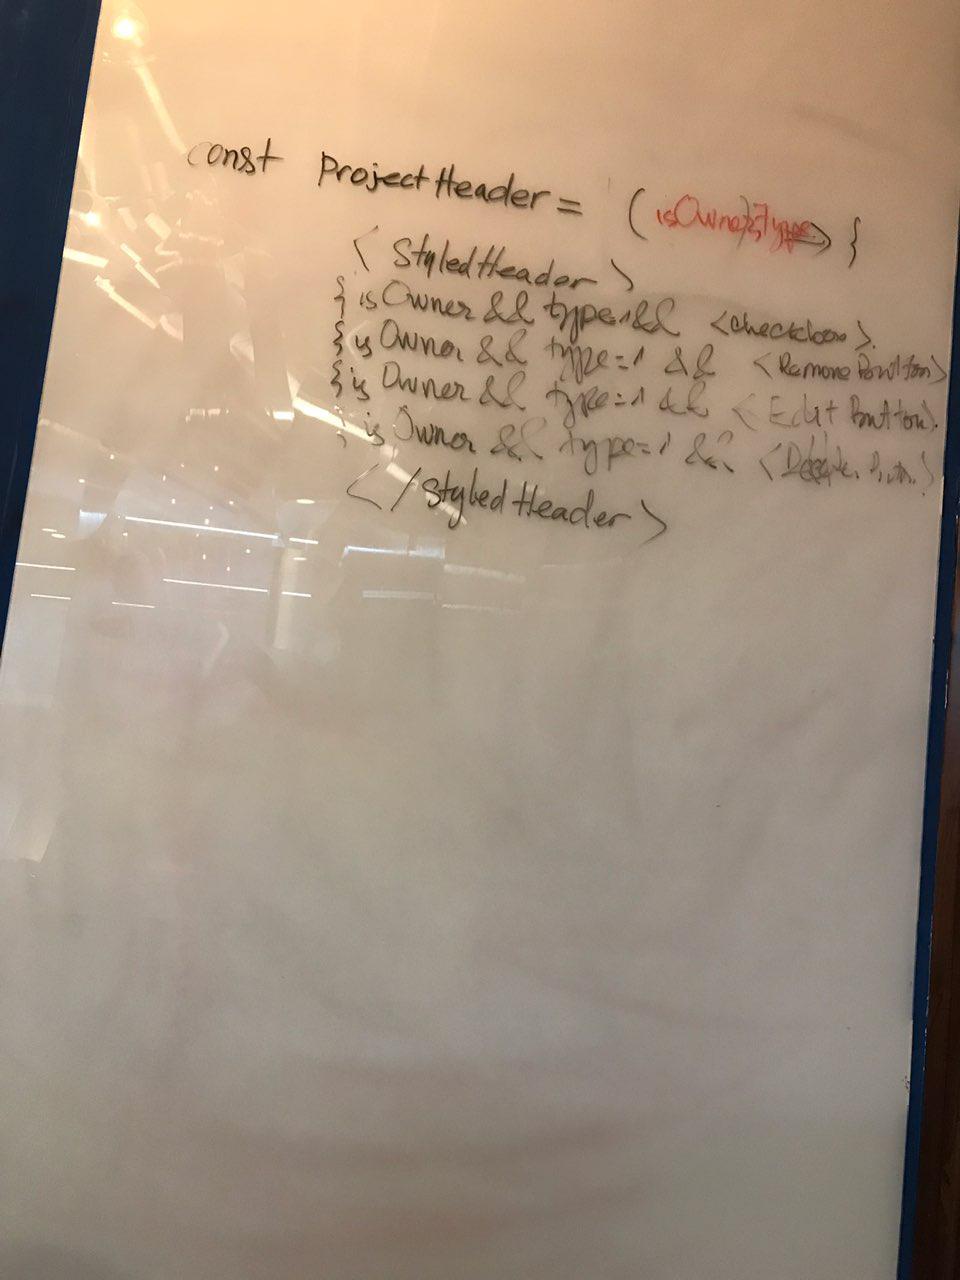 const ProjectHeader = (isOwner, type) => {
< StyledHeader >
{ isOwner && type=1 && <checkbox>.
{ isOwner && type=1 && <Remove Button>
{ isOwner && type=1 && < Edit Button>.
{ isOwner && type=1 && <
</StyledHeader>